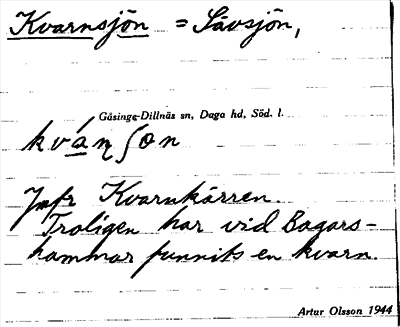 Kvarnsjön = Sävsjön,
Gåsinge-Dillnäs sn, Daga hd, Söd. l.
kvá̱ṇʃon
Jmfr Kvarnkärren.
Troligen har vid Bagars-
hammar funnits en kvarn.
Artur Olsson 1944